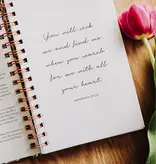 You will seek
me and find me
when you search
for me with all
your heart.
JEREMIAH 29:13